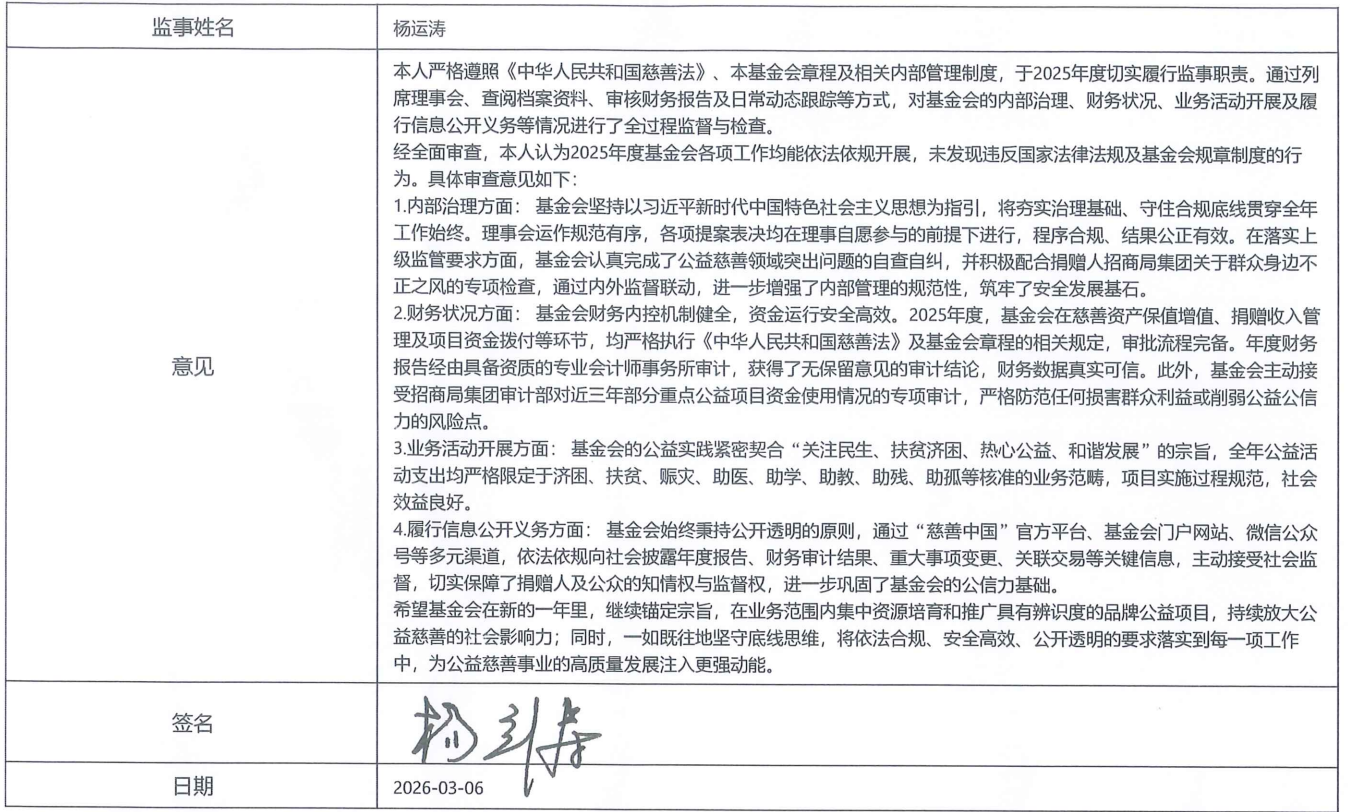 监事姓名
杨运涛
意见
本人严格遵照《中华人民共和国慈善法》、本基金会章程及相关内部管理制度，于2025年度切实履行监事职责。通过列
席理事会、查阅档案资料、审核财务报告及日常动态跟踪等方式，对基金会的内部治理、财务状况、业务活动开展及履
行信息公开义务等情况进行了全过程监督与检查。
经全面审查，本人认为2025年度基金会各项工作均能依法依规开展，未发现违反国家法律法规及基金会规章制度的行
为。具体审查意见如下：
1.内部治理方面： 基金会坚持以习近平新时代中国特色社会主义思想为指引，将夯实治理基础、守住合规底线贯穿全年
工作始终。理事会运作规范有序，各项提案表决均在理事自愿参与的前提下进行，程序合规、结果公正有效。在落实上
级监管要求方面，基金会认真完成了公益慈善领域突出问题的自查自纠，并积极配合捐赠人招商局集团关于群众身边不
正之风的专项检查，通过内外监督联动，进一步增强了内部管理的规范性，筑牢了安全发展基石。
2.财务状况方面： 基金会财务内控机制健全，资金运行安全高效。2025年度，基金会在慈善资产保值增值、捐赠收入管
理及项目资金拨付等环节，均严格执行《中华人民共和国慈善法》及基金会章程的相关规定，审批流程完备。年度财务
报告经由具备资质的专业会计师事务所审计，获得了无保留意见的审计结论，财务数据真实可信。此外，基金会主动接
受招商局集团审计部对近三年部分重点公益项目资金使用情况的专项审计，严格防范任何损害群众利益或削弱公益公信
力的风险点。
3.业务活动开展方面： 基金会的公益实践紧密契合“关注民生、扶贫济困、热心公益、和谐发展”的宗旨，全年公益活
动支出均严格限定于济困、扶贫、赈灾、助医、助学、助教、助残、助孤等核准的业务范畴，项目实施过程规范，社会
效益良好。
4.履行信息公开义务方面： 基金会始终秉持公开透明的原则，通过“慈善中国”官方平台、基金会门户网站、微信公众
号等多元渠道，依法依规向社会披露年度报告、财务审计结果、重大事项变更、关联交易等关键信息，主动接受社会监
督，切实保障了捐赠人及公众的知情权与监督权，进一步巩固了基金会的公信力基础。
希望基金会在新的一年里，继续锚定宗旨，在业务范围内集中资源培育和推广具有辨识度的品牌公益项目，持续放大公
益慈善的社会影响力；同时，一如既往地坚守底线思维，将依法合规、安全高效、公开透明的要求落实到每一项工作
中，为公益慈善事业的高质量发展注入更强动能。
签名
杨运涛
日期
2026-03-06